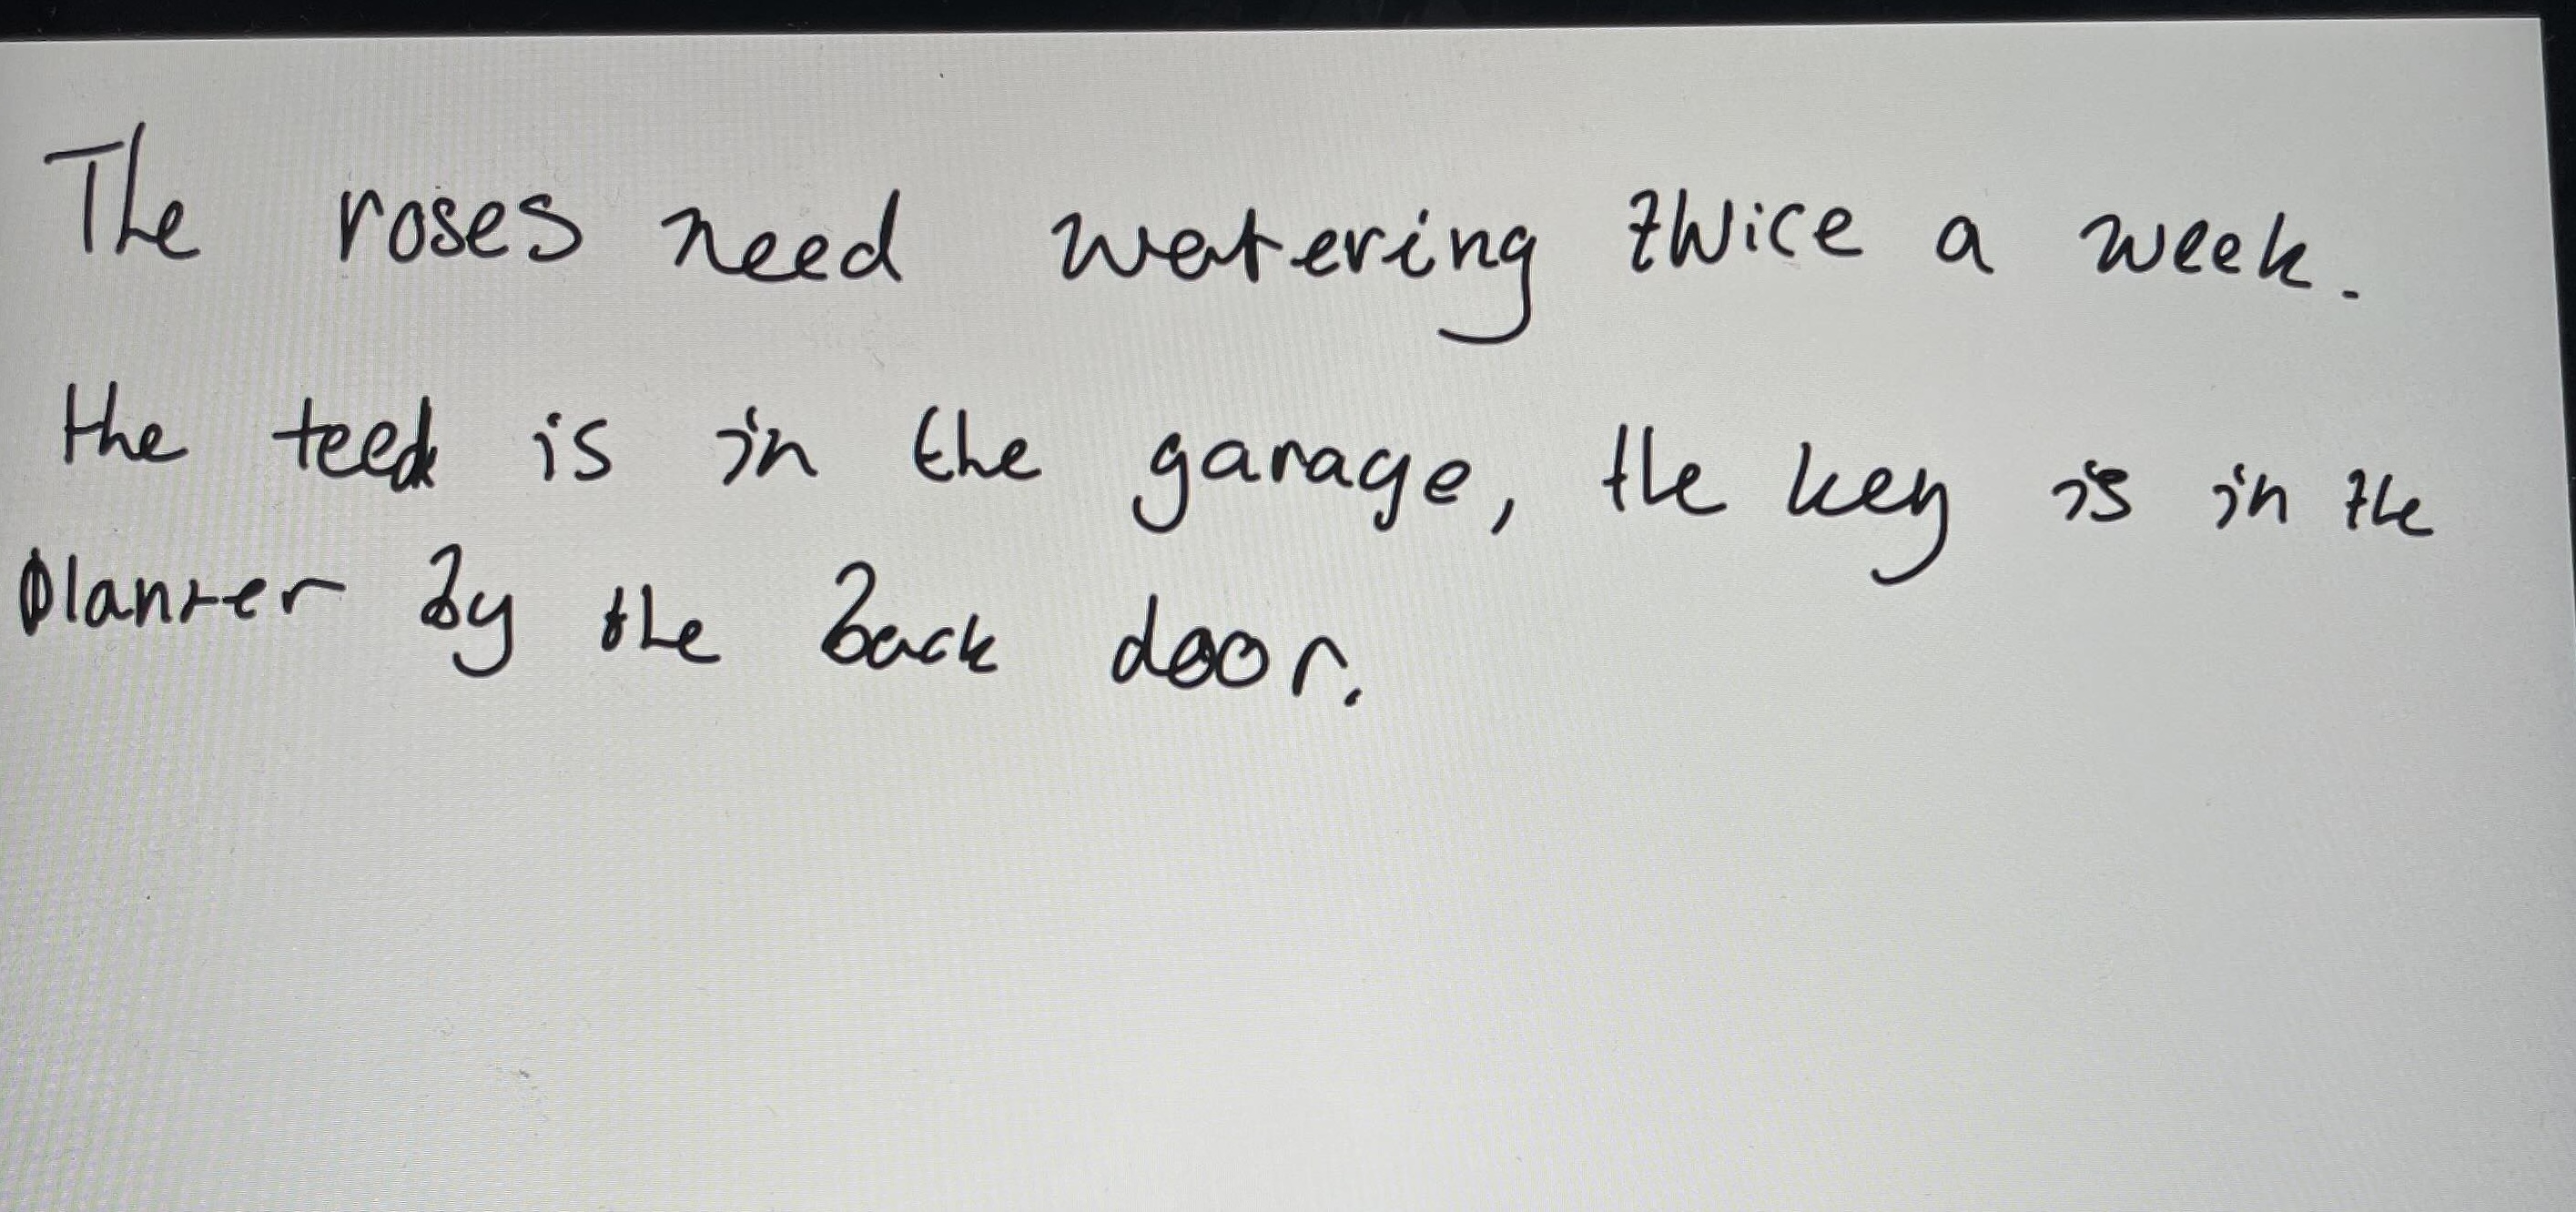 The roses need watering twice a week.
the feed is in the garage, the key is in the
planter by the back door.